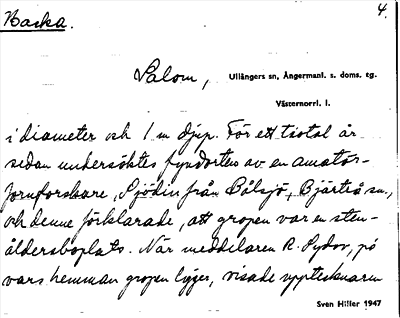 Backa.
4.
Salom, Ullångers sn, Ångermanl. s. doms. tg.
Västernorrl. l.
i diameter och 1 m djup. För ett tiotal år
sedan undersöktes fyndorten av en amatör-
fornforskare, Sjödin från Bölsjö, Bjärtrå sn.,
och denne förklarade, att gropen var en sten-
åldersboplats. När meddelaren R. Sydov, på
vars hemman gropen ligger, visade upptecknaren
Sven Hiller 1947